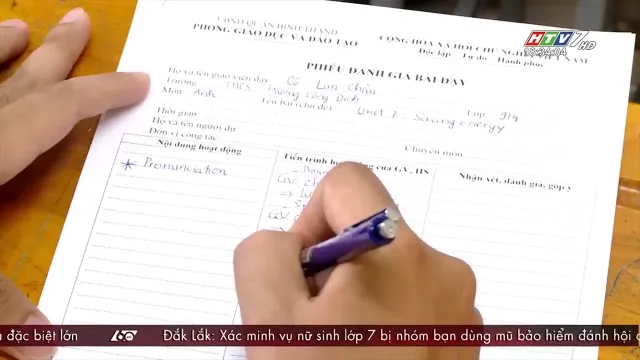 UBND QUẬN BÌNH THẠNH
PHÒNG GIÁO DỤC VÀ ĐÀO TẠO
CỘNG HÒA XÃ HỘI CHỦ NGHĨA NAM
Độc lập Tự do Hạnh phúc
HTV7 HD
18:34:04
PHIẾU ĐÁNH GIÁ BÀI DẠY
Họ và tên giáo viên dạy Cô Lan Châu
Trường THCS Trương Công Định
Môn Anh Tên bài (chủ đề) Unit 7: Saving energy Lớp 9/4
Thời gian
Họ và tên người dự
Đơn vị công tác Chuyên môn
Nội dung hoạt động
Tiến trình của GV, HS
Nhận xét, đánh giá, góp ý
* Pronunciation
GV
GV
đặc biệt lớn
60
Đắk Lắk: Xác minh vụ nữ sinh lớp 7 bị nhóm bạn dùng mũ bảo hiểm đánh hội